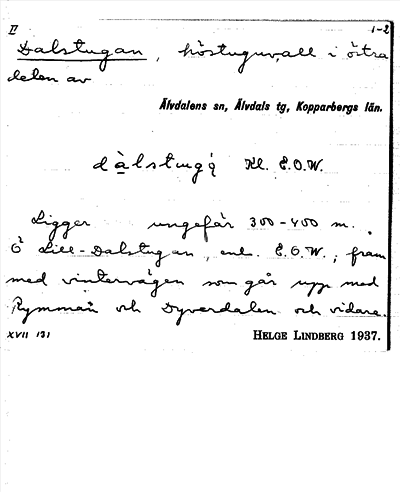 II 1-2
Dalstugan, höstuguvall i östra
delen av
Älvdalens sn, Älvdals tg, Kopparbergs län.
dàlstugą̀ Kl. E.O.W.
Ligger ungefär 300-400 m.
Ö Lill-Dalstugan, enl. E.O.W., fram
med vintervägen som går upp med
Rymmån och Dyverdalen och vidare.
XVII 131 HELGE LINDBERG 1937.